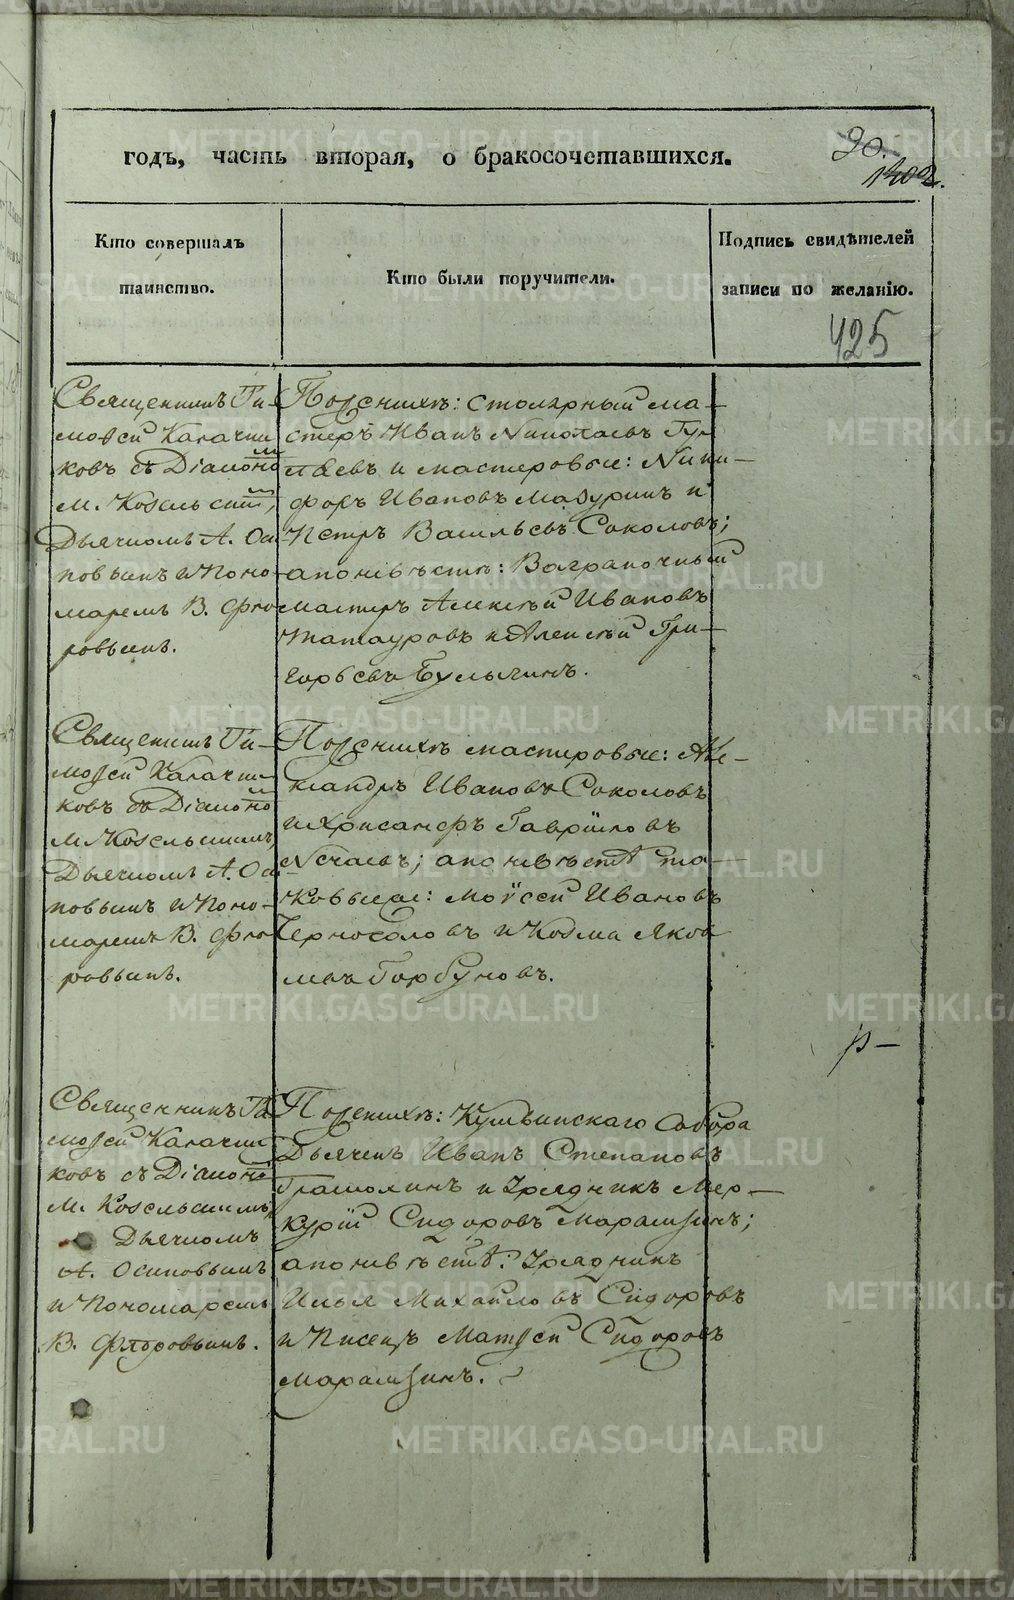 годъ, часть вторая, о бракосочетавшихся.
90.
1402.
Кто совершалъ
таинство.
Кто были поручители.
Подпись свидѣтелей
записи по желанію.
425
Священникъ Ти-
моѳей Калачни
ковъ съ Діакономъ
М. Козельскимъ,
Дьячкомъ А. Оси
повымъ и Поно-
маремъ В. Фло
ровымъ.
По женихѣ: столярный ма-
стеръ Иванъ Николаевъ
и мастеровые: Ники-
форъ Ивановъ Мазуринъ и
Петръ Васильевъ Соколовъ;
а по невѣстѣ: Ваграночный
мастеръ Алексѣй Ивановъ
Татауровъ и Алексѣй Гри-
горьевъ Булычинъ.
Священникъ Ти-
моѳей Калачни
ковъ съ Діакономъ
М. Козельскимъ,
Дьячкомъ А. Оси
повымъ и Поно-
маремъ В. Фло
ровымъ.
По женихѣ мастеровые: Але-
ксандръ Ивановъ Соколовъ
и Хрисанфъ Гавріиловъ
Нечаевъ; а по невѣстѣ та-
ковыеже: Моѵсей Ивановъ
Черноголовъ и Козма Яков
левъ Горбуновъ.
р-
Священникъ Ти
моѳей Калачни
ковъ съ Діакономъ
М. Козельскимъ,
Дьячкомъ
А. Осиповымъ
и Пономаремъ
В. Флоровымъ.
По женихѣ: Кушвинскаго Собора
Дьячекъ Иванъ Степановъ
и Урядникъ Мер-
курій Сидоровъ
а по невѣстѣ: Урядникъ
Илья Михайловъ Сидоровъ
и Писецъ Матѳей Сидоровъ
METRIKI.GASO-URAL.RU